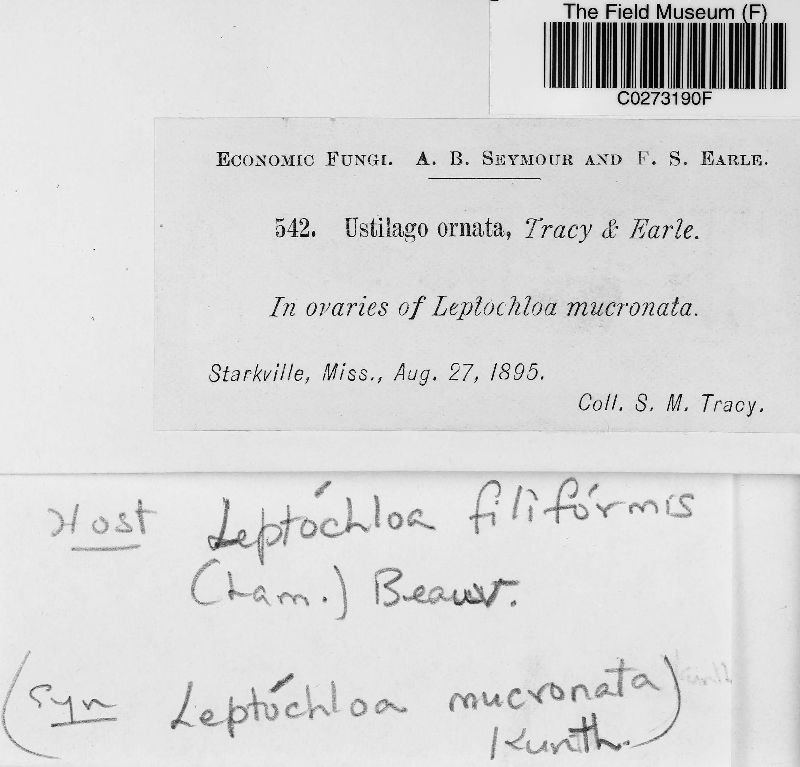 The Field Museum (F)
C0273190F
Economic Fungi. A. B. Seymour and F. S. Earle.
542. Ustilago ornata, Tracy & Earle.
In ovaries of Leptochloa mucronata.
Starkville, Miss., Aug. 27, 1895.
Coll. S. M. Tracy.
Host Leptóchloa filifórmis
(Lam.) Beauv.
(Syn Leptóchloa mucronata)
Kunth.